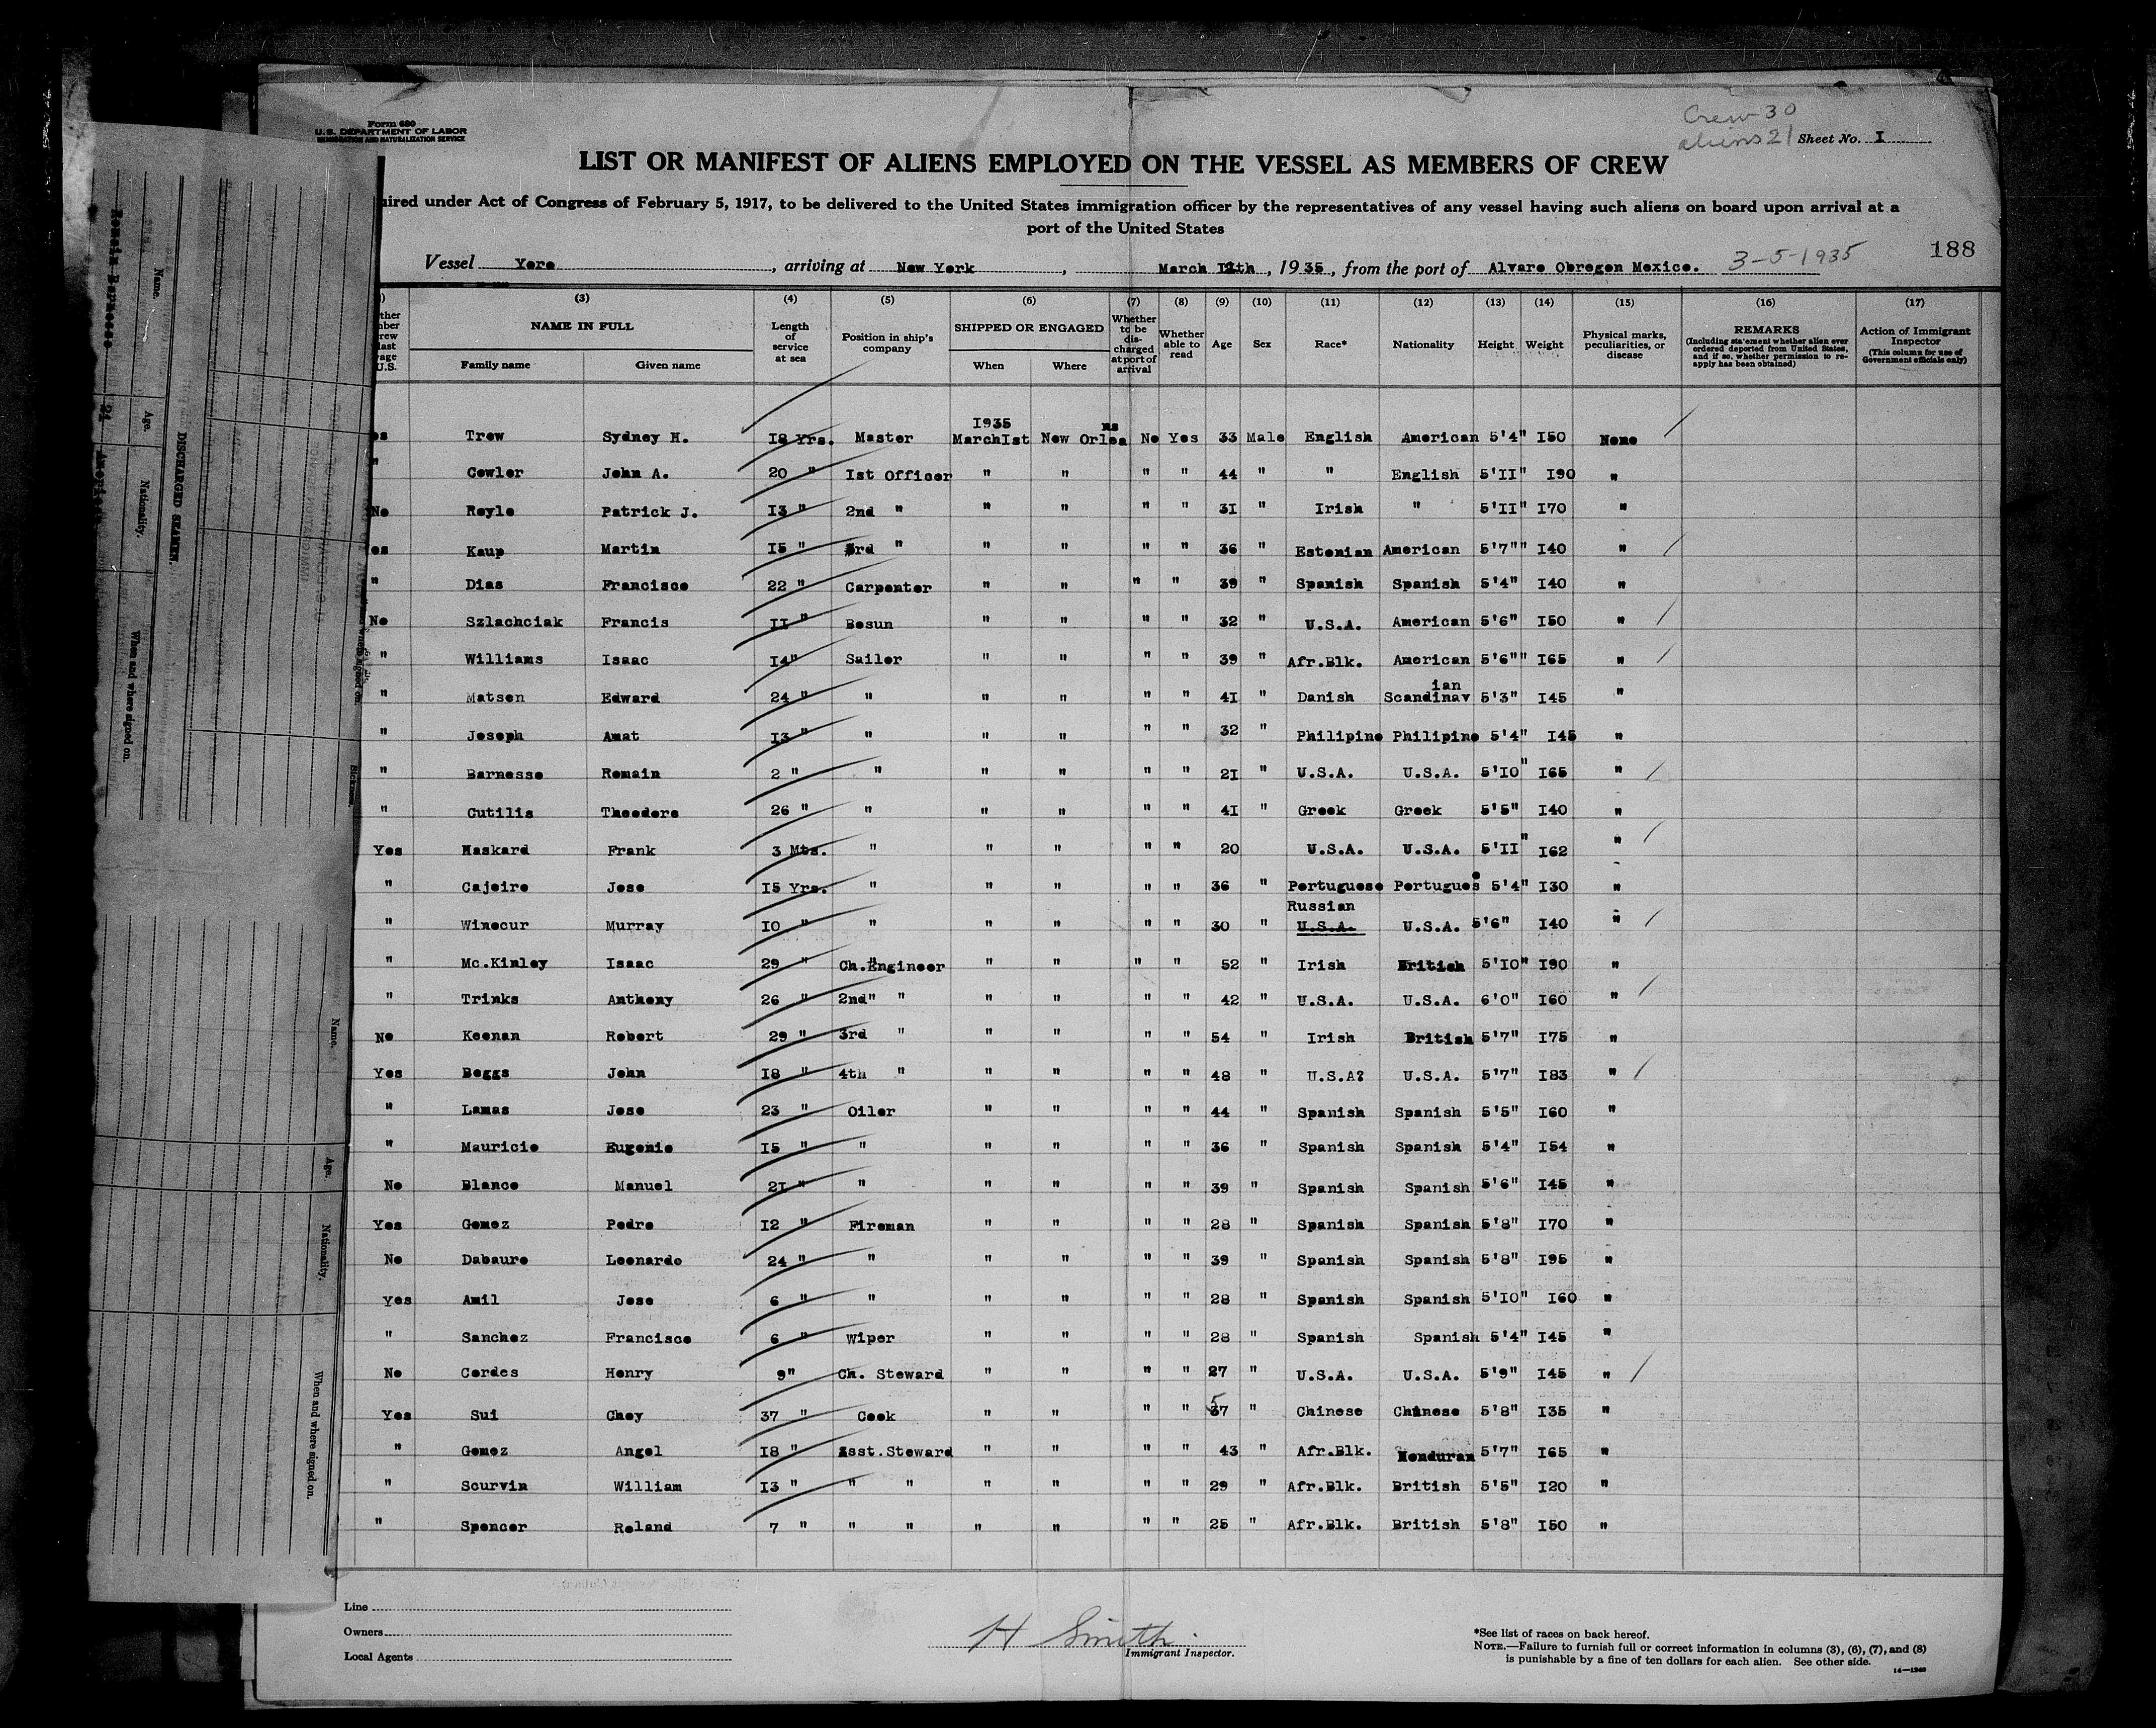 Crew 30
aliens 21
Form 680
U.S. DEPARTMENT OF LABOR
IMMIGRATION AND NATURALIZATION SERVICE
Sheet No. I
LIST OR MANIFEST OF ALIENS EMPLOYED ON THE VESSEL AS MEMBERS OF CREW
uired under Act of Congress of February 5, 1917, to be delivered to the United States immigration officer by the representatives of any vessel having such aliens on board upon arrival at a
port of the United States
188
Vessel Yoro, arriving at New York, March 12th, 1935, from the port of Alvaro Obregon Mexico. 3-5-1935
(3) (4) (5) (6) (7) (8) (9) (10) (11) (12) (13) (14) (15) (16) (17)
NAME IN FULL Length of service at sea Position in ship's company SHIPPED OR ENGAGED Whether to be discharged at port of arrival Whether able to read Age Sex Race* Nationality Height Weight Physical marks, peculiarities, or disease REMARKS (Including statement whether alien ever ordered deported from United States, and if so, whether permission to reapply has been obtained) Action of Immigrant Inspector (This column for use of Government officials only)
Family name Given name When Where
I935
es Trow Sydney H. I8 Yrs. Master MarchIst New Orleans No Yes 33 Male English American 5'4" I50 None
" Cowler John A. 20 " Ist Officer " " " " 44 " " English 5'II" I90 "
No Royle Patrick J. I3 " 2nd " " " " " 3I " Irish " 5'II" I70 "
es Kaup Martin I5 " 3rd " " " " " 36 " Estonian American 5'7"" I40 "
" Dias Francisco 22 " Carpenter " " " " 39 " Spanish Spanish 5'4" I40 "
No Szlachciak Francis II " Bosun " " " " 32 " U.S.A. American 5'6" I50 "
" Williams Isaac I4" Sailor " " " " 39 " Afr.Blk. American 5'6"" I65 "
" Matson Edward 24 " " " " " " 4I " Danish Scandinavian 5'3" I45 "
" Joseph Amat I3 " " " " " " 32 " Philipino Philipino 5'4" I45 "
" Barnesso Romain 2 " " " " " " 2I " U.S.A. U.S.A. 5'IO" I65 "
" Cutilis Theodore 26 " " " " " " 4I " Greek Greek 5'5" I40 "
Yes Haskard Frank 3 Mts. " " " " " 20 U.S.A. U.S.A. 5'II" I62 "
" Cajoiro Jose I5 Yrs. " " " " " 36 " Portuguese Portugues 5'4" I30 "
Russian
" Winocur Murray IO " " " " " " 30 " U.S.A. U.S.A. 5'6" I40 "
" Mc.Kinley Isaac 29 " Ch.Engineer " " " " 52 " Irish British 5'IO" I90 "
" Trinks Anthony 26 " 2nd" " " " " " 42 " U.S.A. U.S.A. 6'0" I60 "
No Keenan Robert 29 " 3rd " " " " " 54 " Irish British 5'7" I75 "
Yes Boggs John I8 " 4th " " " " " 48 " U.S.A? U.S.A. 5'7" I83 "
" Lamas Jose 23 " Oiler " " " " 44 " Spanish Spanish 5'5" I60 "
" Mauricio Eugenio I5 " " " " " " 36 " Spanish Spanish 5'4" I54 "
No Blanco Manuel 2I " " " " " " 39 " Spanish Spanish 5'6" I45 "
Yes Gomez Pedro I2 " Fireman " " " " 28 " Spanish Spanish 5'8" I70 "
No Dabaure Leonardo 24 " " " " " " 39 " Spanish Spanish 5'8" I95 "
Yes Amil Jose 6 " " " " " " 28 " Spanish Spanish 5'IO" I60 "
" Sanchez Francisco 6 " Wiper " " " " 28 " Spanish Spanish 5'4" I45 "
No Cordes Henry 9" Ch. Steward " " " " 27 " U.S.A. U.S.A. 5'9" I45 "
Yes Sui Choy 37 " Cook " " " " 57 " Chinese Chinese 5'8" I35 "
" Gomez Angel I8 " Asst.Steward " " " " 43 " Afr.Blk. Honduran 5'7" I65 "
" Scurvin William I3 " " " " " " " 29 " Afr.Blk. British 5'5" I20 "
" Spencer Roland 7 " " " " " " " 25 " Afr.Blk. British 5'8" I50 "
Line
Owners
Local Agents
H Smith.
Immigrant Inspector.
*See list of races on back hereof.
NOTE.—Failure to furnish full or correct information in columns (3), (6), (7), and (8)
is punishable by a fine of ten dollars for each alien. See other side.
14—1240
Romain Barnesso
Name.
Age.
Nationality.
When and where signed on.
DISCHARGED SEAMEN.
Sickness.
Name.
Age.
Nationality.
When and where signed on.